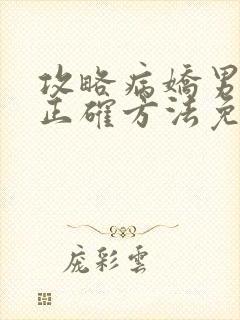 攻略病嬌男
正確方法免
庞彩雲